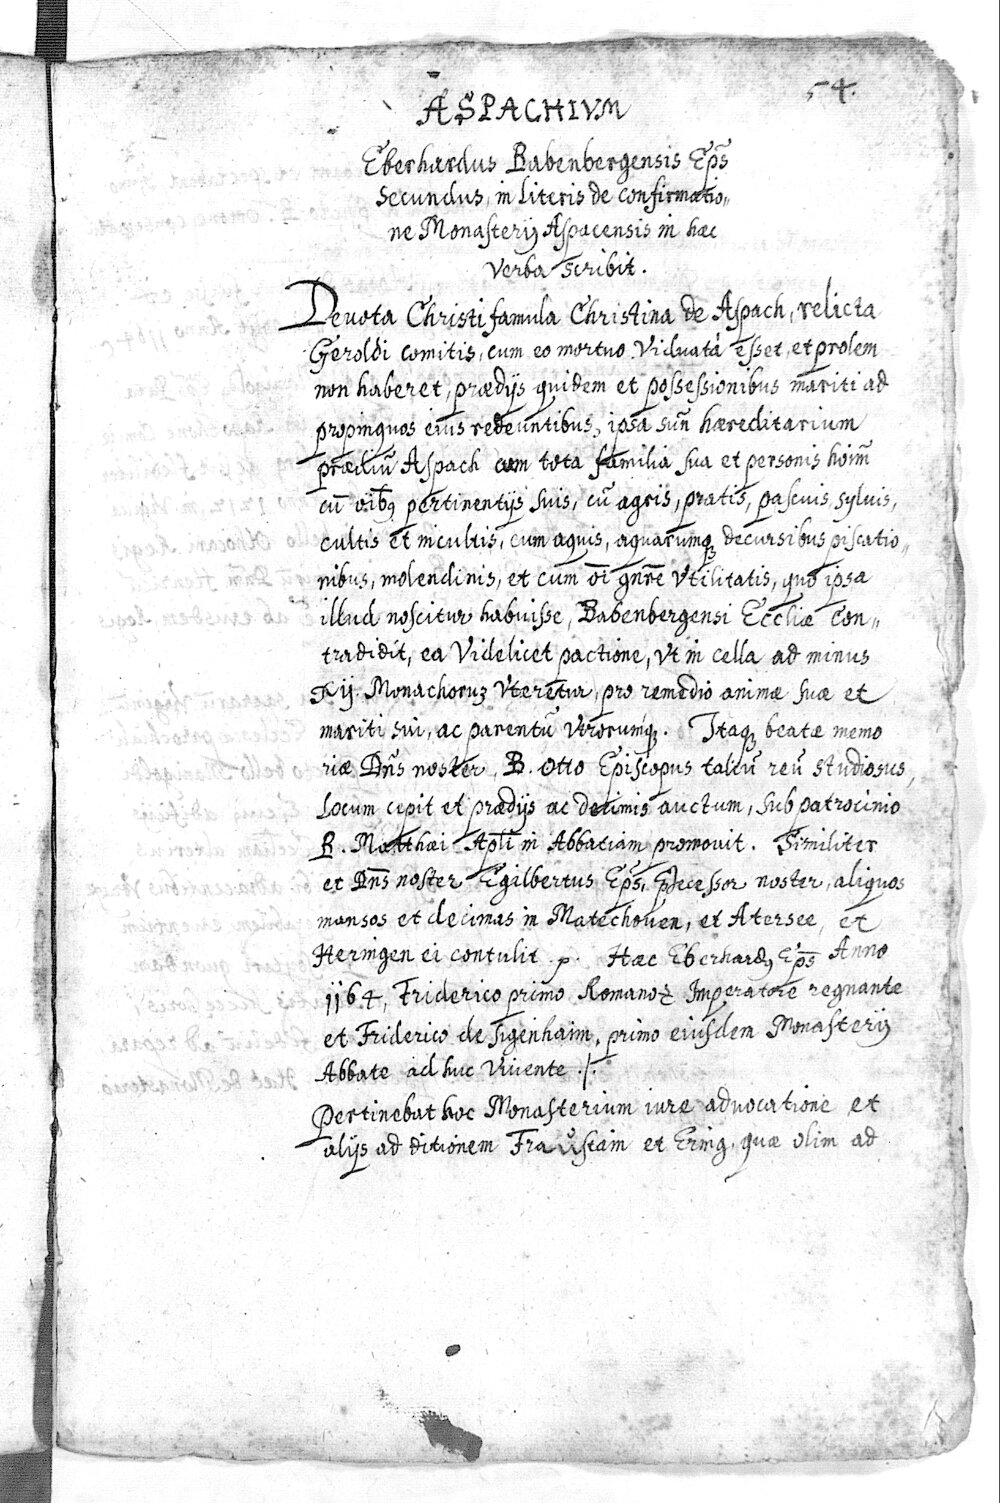 54.
ASPACHIVM
Eberhardus Babenbergensis Ep̃s
Secundus, in Literis de confirmatio„
ne Monasterij Aspacensis in hæc
verba scribit.
Deuota Christi famula Christina de Aspach, relicta
Geroldi comitis, cum eo mortuo Viduata esset, et prolem
non haberet, prædijs quidem et possessionibus mariti ad
propinquos eius redeuntibus, ipsa suũ hæreditarium
prædiũ Aspach cum tota familia sua et personis hoĩm
cũ oĩbꝫ pertinentijs suis, cũ agris, pratis, pascuis, syluis,
cultis et incultis, cum aquis, aquarumqꝫ decursibus piscatio„
nibus, molendinis, et cum oĩ gñre Vtilitatis, quo ipsa
illud noscitur habuisse, Babenbergensi Eccl̃iæ Con„
tradidit, ea Videlicet pactione, Vt in cella ad minus
Xij. Monachorꝫ Vteretur, pro remedio animæ suæ et
mariti sui, ac parentũ Vtrorumqꝫ. Itaqꝫ beatæ memo
riæ Dñs noster, B. Otto Episcopus taliũ reũ studiosus,
Locum cepit et prædijs ac decimis auctum, sub patrocinio
B. Matthæi Apl̃i in Abbatiam promouit. Similiter
et Dñs noster Egilbertus Ep̃s, p̃decessor noster, aliquos
mansos et decimas in Matechouen, et Atersee, et
Heringen ei contulit .p. Hæc Eberhardꝫ Ep̃s Anno
1164, Friderico primo Romanoꝝ Imperatore regnante
et Friderico de Sigenhaim, primo eiusdem Monasterij
Abbate ad huc Viuente ./.
Pertinebat hoc Monasterium iure aduocatione et
alijs ad ditionem et Ering, quæ olim ad